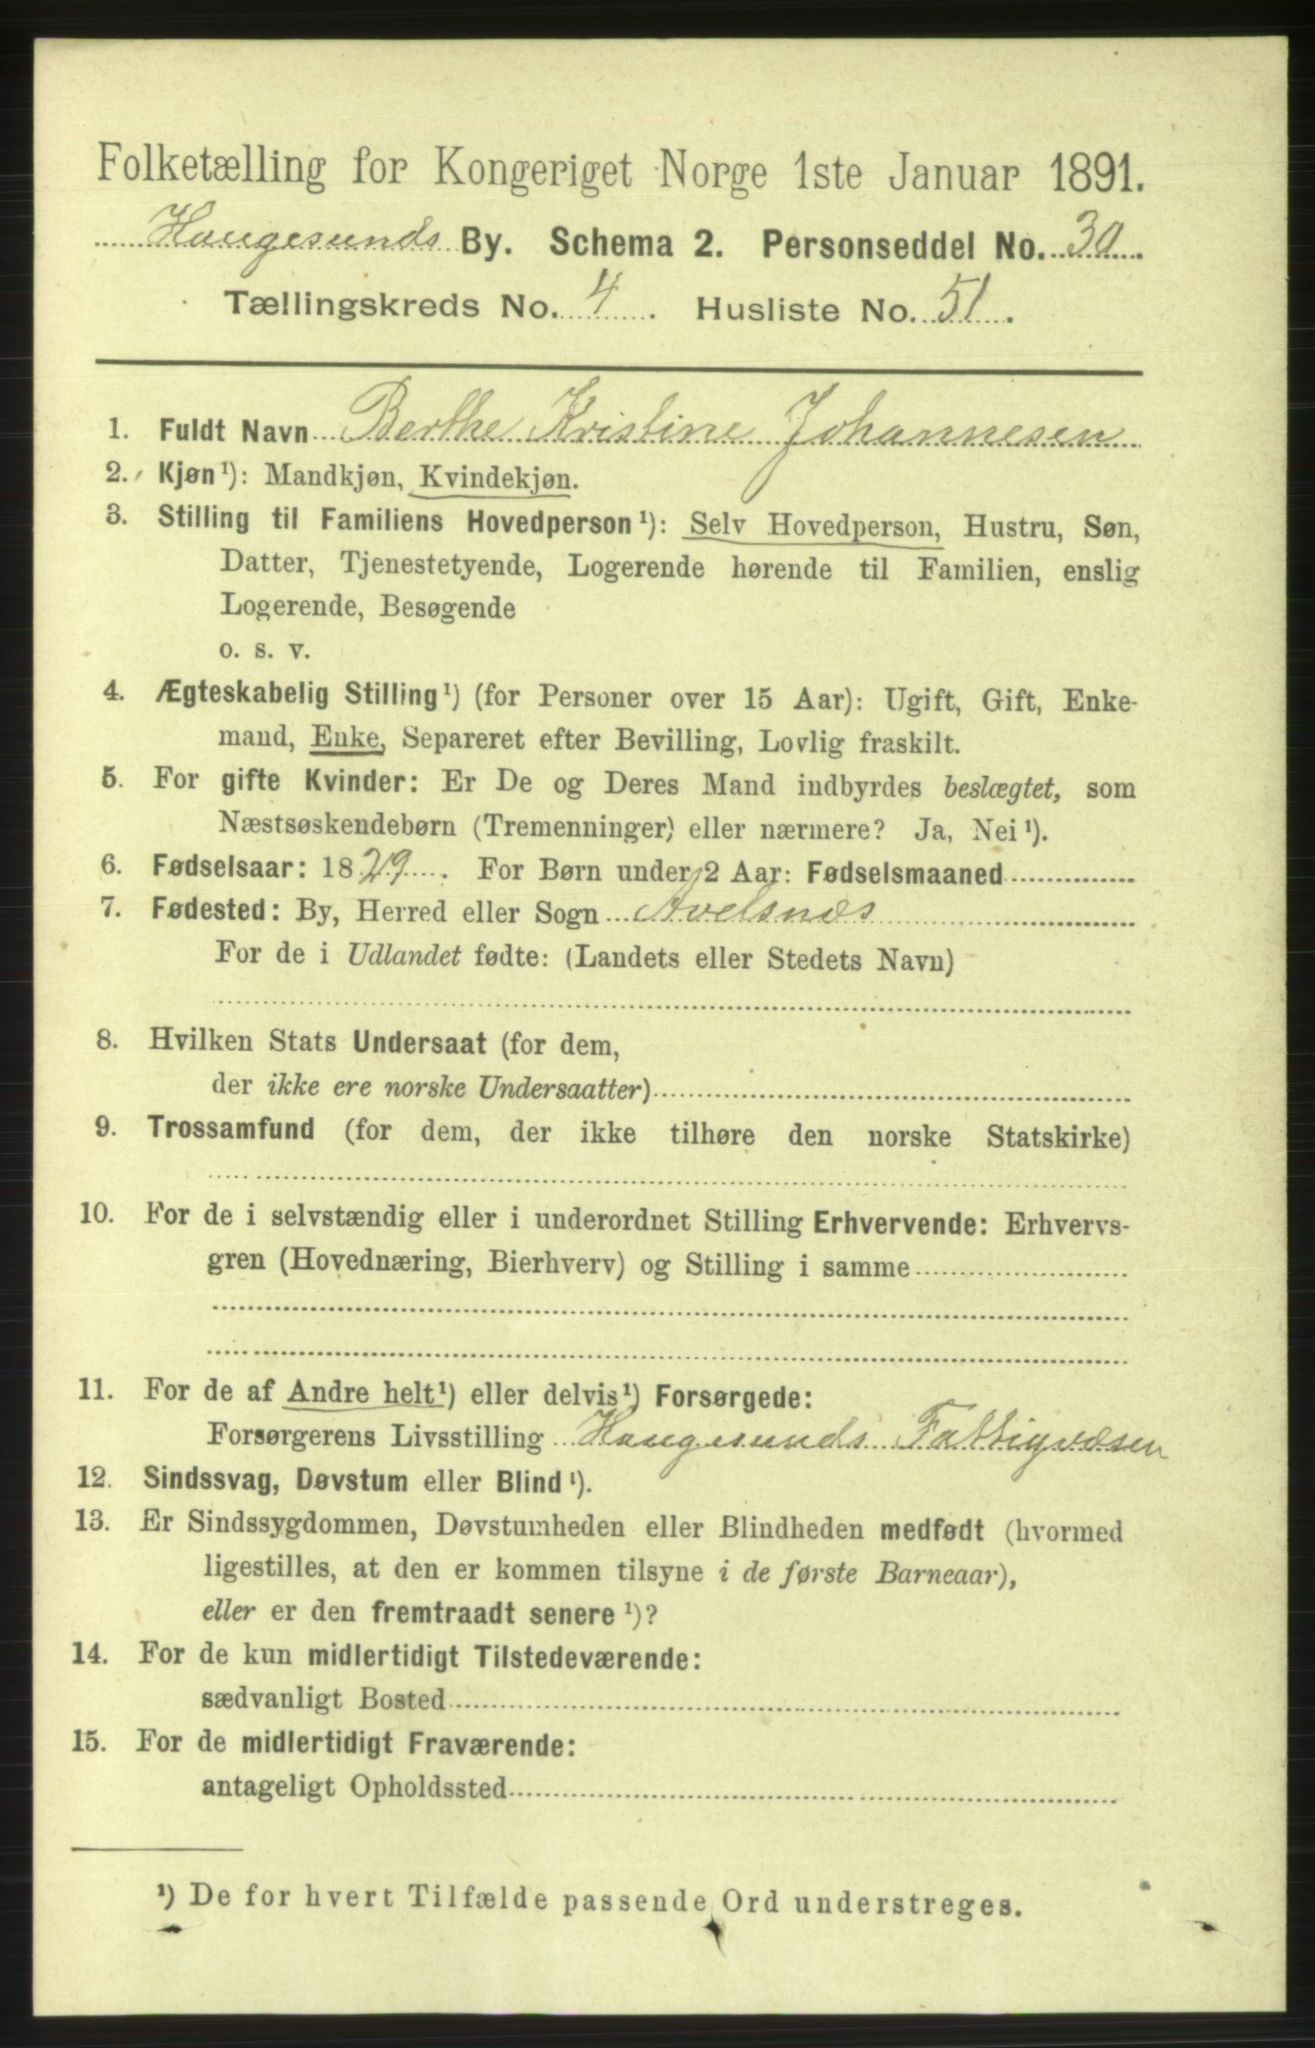 Folketælling for Kongeriget Norge 1ste Januar 1891.
Haugesunds By. Schema 2. Personseddel No. 30.
Tællingskreds No. 4. Husliste No. 51.
1. Fuldt Navn Berthe Kristine Johannesen
2. Kjøn¹): Mandkjøn, Kvindekjøn.
3. Stilling til Familiens Hovedperson¹): Selv Hovedperson, Hustru, Søn,
Datter, Tjenestetyende, Logerende hørende til Familien, enslig
Logerende, Besøgende
o. s. v.
4. Ægteskabelig Stilling¹) (for Personer over 15 Aar): Ugift, Gift, Enke-
mand, Enke, Separeret efter Bevilling, Lovlig fraskilt.
5. For gifte Kvinder: Er De og Deres Mand indbyrdes beslægtet, som
Næstsøskendebørn (Tremenninger) eller nærmere? Ja, Nei¹).
6. Fødselsaar: 1829. For Børn under 2 Aar: Fødselsmaaned
7. Fødested: By, Herred eller Sogn Avelsnæs
For de i Udlandet fødte: (Landets eller Stedets Navn)
8. Hvilken Stats Undersaat (for dem,
der ikke ere norske Undersaatter)
9. Trossamfund (for dem, der ikke tilhøre den norske Statskirke)
10. For de i selvstændig eller i underordnet Stilling Erhvervende: Erhvervs-
gren (Hovednæring, Bierhverv) og Stilling i samme
11. For de af Andre helt¹) eller delvis¹) Forsørgede:
Forsørgerens Livsstilling Haugesunds Fattigvæsen
12. Sindssvag, Døvstum eller Blind¹).
13. Er Sindssygdommen, Døvstumheden eller Blindheden medfødt (hvormed
ligestilles, at den er kommen tilsyne i de første Barneaar),
eller er den fremtraadt senere¹)?
14. For de kun midlertidigt Tilstedeværende:
sædvanligt Bosted
15. For de midlertidigt Fraværende:
antageligt Opholdssted
¹) De for hvert Tilfælde passende Ord understreges.